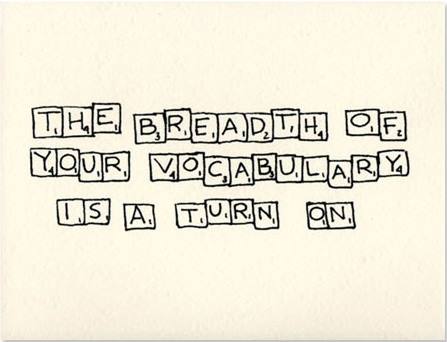 THE BREADTH OF
YOUR VOCABULARY
IS A TURN ON